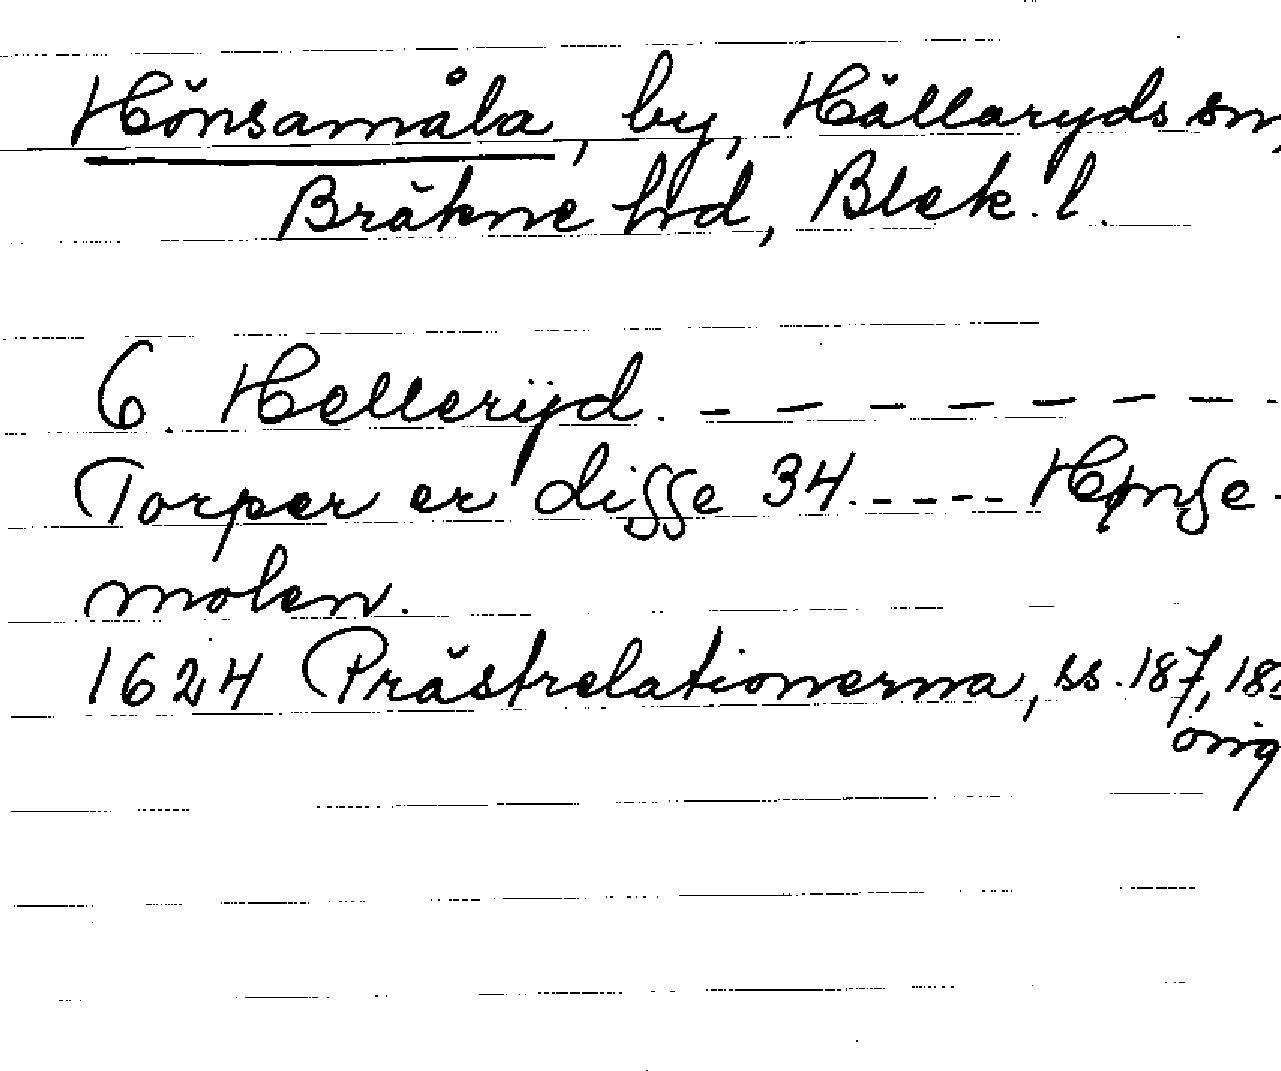 Hönsamåla, by, Hällaryds sn,
Bräkne hd, Blek. l.
6. Hellerÿd. - - - - - - - -
Torper er disse 34. - - - - Hønse-
molen.
1624 Prästrelationerna, ss. 187, 188
orig